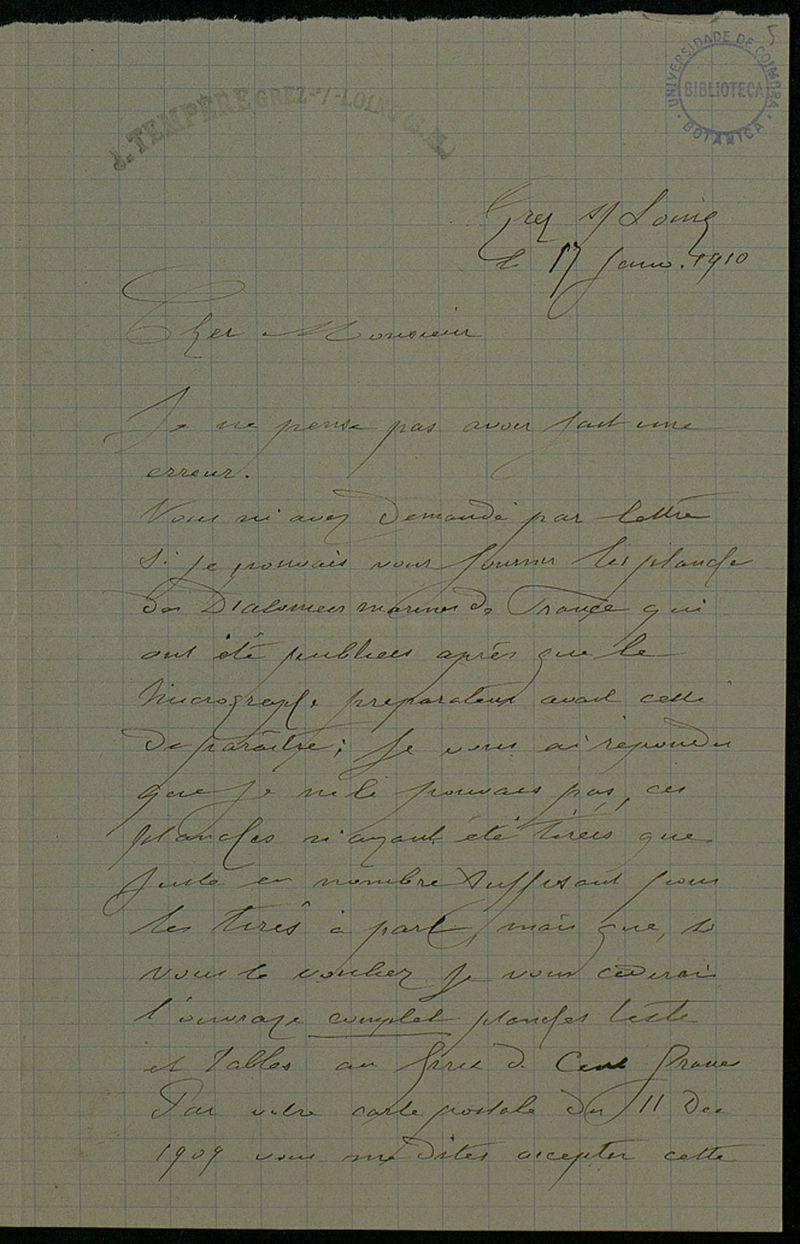 5
UNIVERSIDADE DE COIMBRA
BIBLIOTECA
BOTANICA
J. TEMPÈRE GREZ-s/-LOING (S.M.)
Grez s/ Loing
le 17 Janv. 1910
Cher Monsieur
Je ne pense pas avoir fait une
erreur.
Vous m'avez demandé par lettre
si je pouvais vous fournir les planches
des Diatomées marines de France qui
ont été publiées après que le
Micrographe préparateur avait cessé
de paraître; je vous ai répondu
que je ne le pouvais pas, ces
planches n'ayant été tirées que
juste en nombre suffisant pour
les tirés à part, mais que, si
vous le vouliez je vous céderais
l'ouvrage complet planches texte
et tables au prix de Cent francs
Par votre carte postale du 11 Dec
1909 vous me dites accepter cette